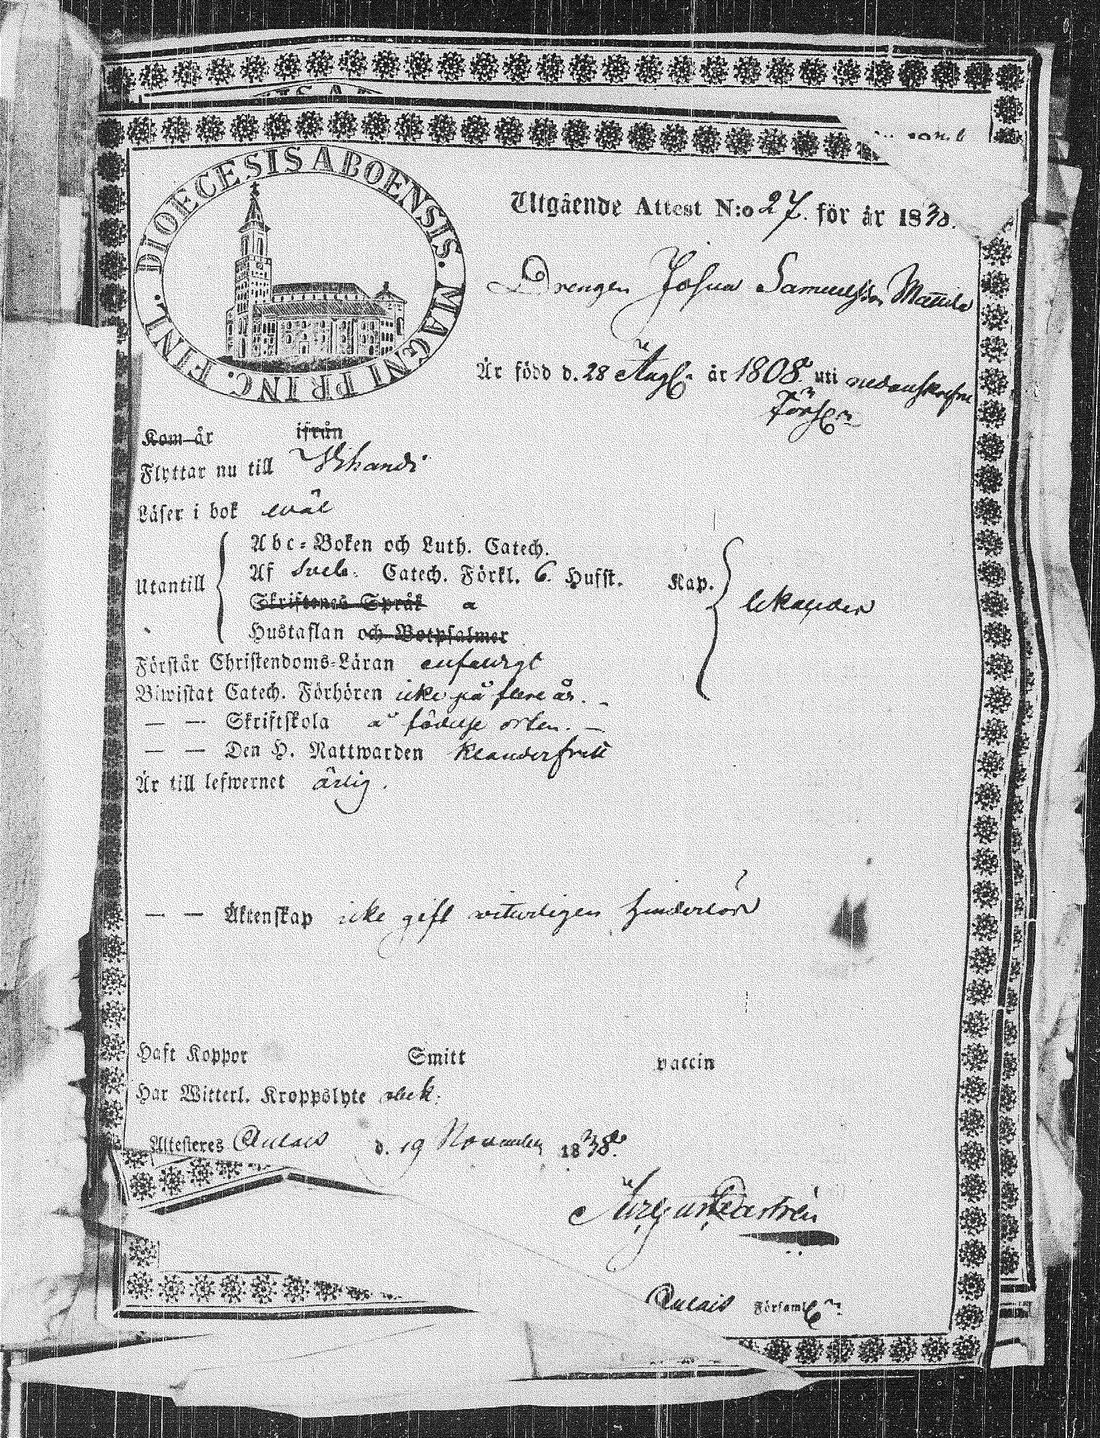 DIOECESIS ABOENSIS. MAGNI PRINC. FINL.
Utgående Attest N:o 27. för år 1838.
Drengen Josua Samuelsson Mattila
Är född d. 28 Aug. är 1808. uti nedanskrefne
Förs.
Kom år ifrån
Flyttar nu till
Läser i bok wäl
Utantill
Abc-Boken och Luth. Catech.
Af Sveb. Catech. Förkl. 6. Hufst. Kap.
Skriftenes Språk a
Hustaflan och Botpsalmer
Förstår Christendoms-Läran enfaldigt
Biwistat Catech. Förhören icke på flere år.
— — Skriftskola å födelse orten. —
— — Den H. Nattwarden klanderfritt
Är till lefwernet ärlig.
— — Äktenskap icke gift witterligen hinderlös
Haft Koppor Smitt vaccin
Har Witterl. Kroppslyte obek.
Attesteres Aulais d. 19 November 1838.
Aulais Församl.